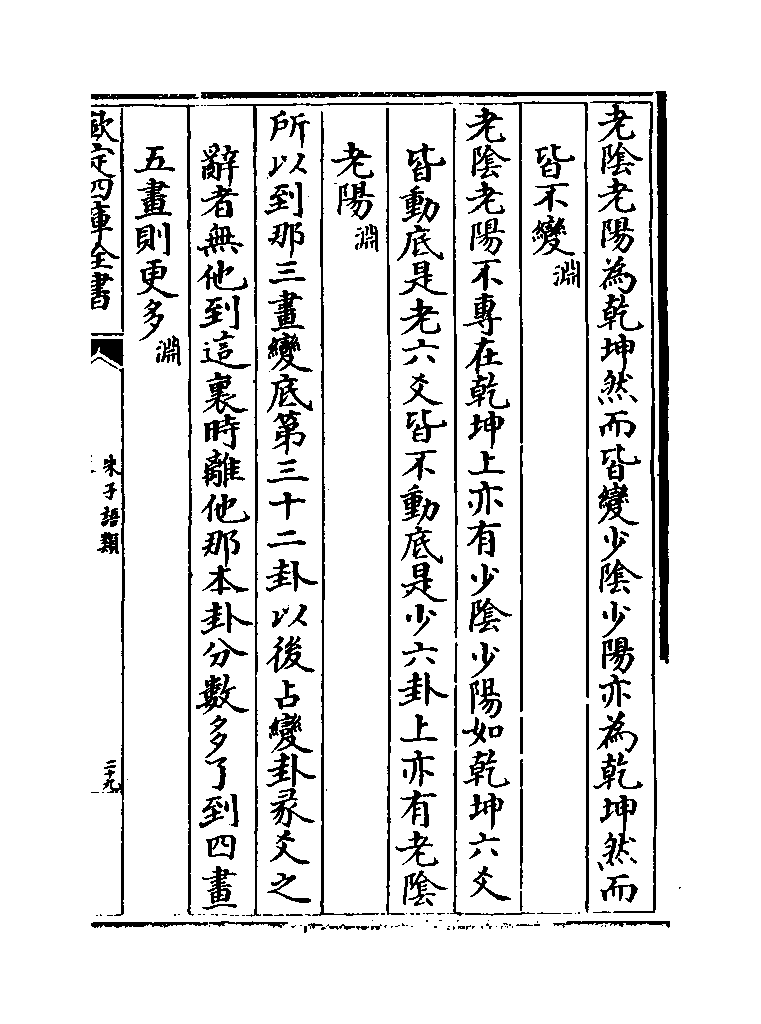 老陰老陽為乾坤然而皆變少陰少陽亦為乾坤然而
皆不變淵
老陰老陽不專在乾坤上亦有少陰少陽如乾坤六爻
皆動底是老六爻皆不動底是少六卦上亦有老陰
老陽淵
所以到那三畫變底第三十二卦以後占變卦彖爻之
辭者無他到這裏時離他那本卦分數多了到四畫
五畫則更多淵
欽定四庫全書
朱子語類
二十九